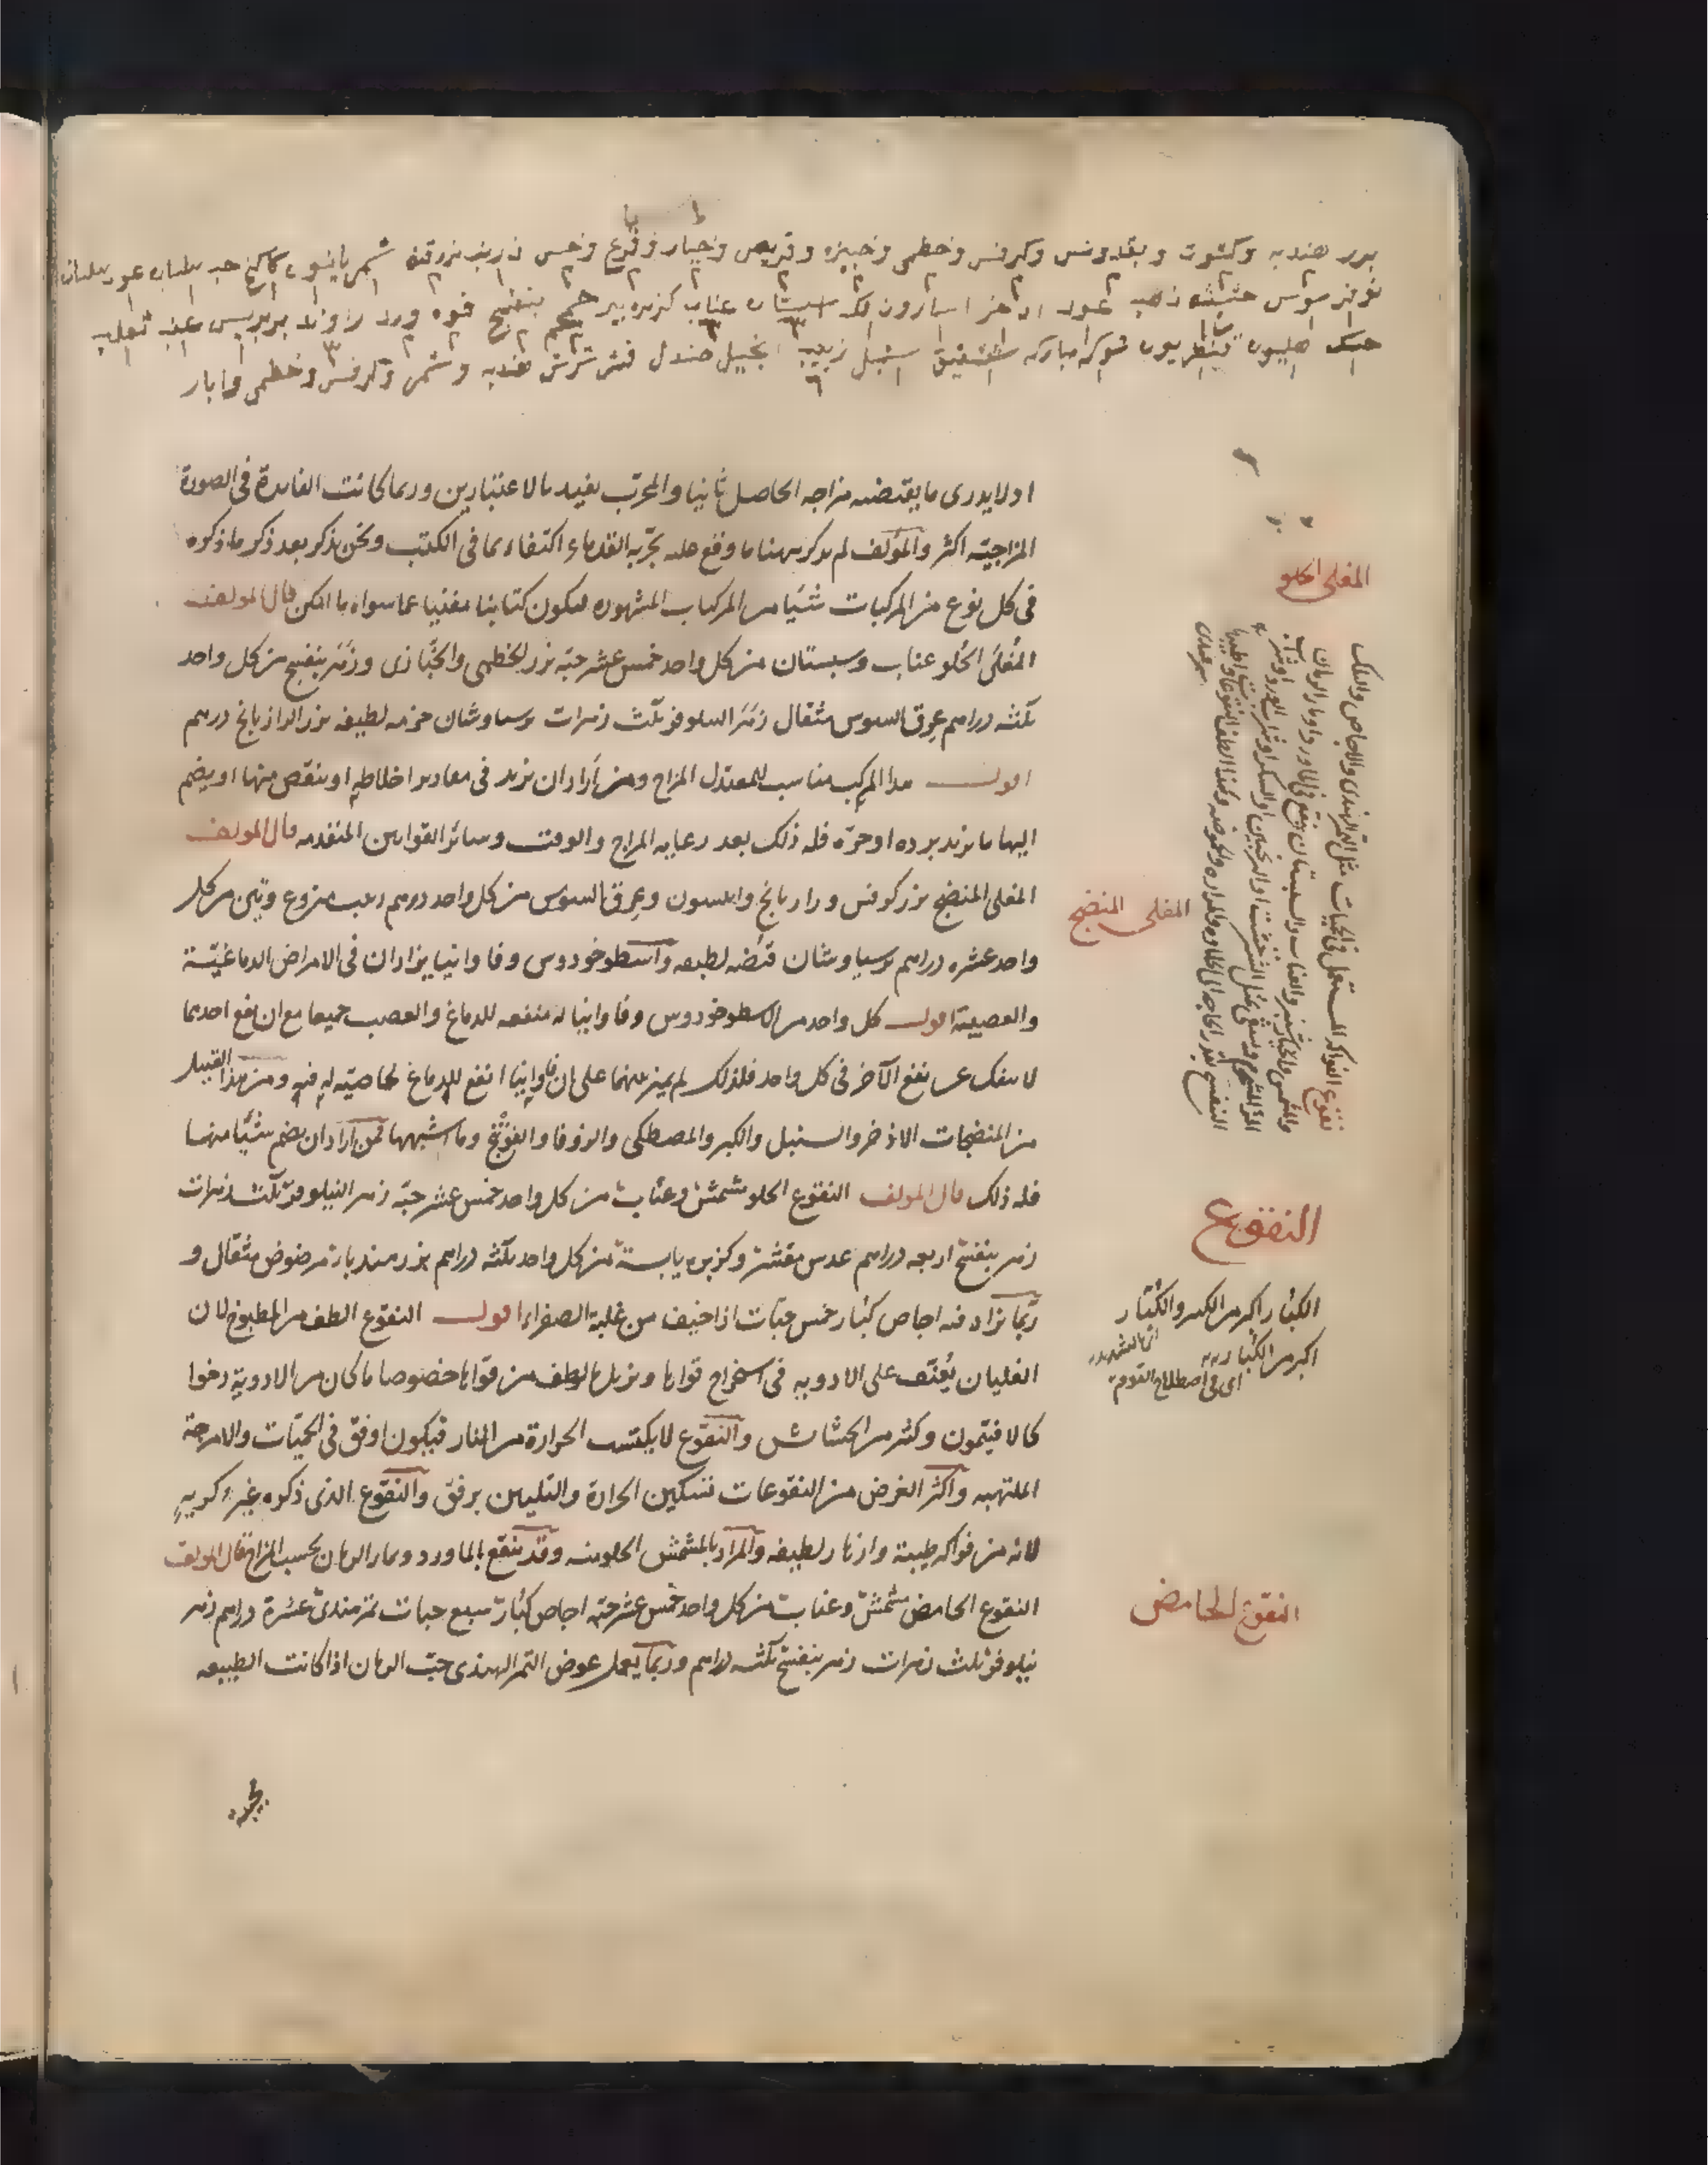 بزر هندبه وكشوت وبقدونس وكرفس وخطمى وخبيزه وقريص وخيار وقرع وخس شمر يانسون كاكنج حب بلسان عود بلسان
سوس حشيشه ذهب عود اذخر اسارون لك سبستان عناب كزبره بير بنفسج فوه ورد راوند بربريس عنب ثعلب
حسك هليون قنطريون شوكه مباركه سنبل زبيب صندل قشر شرش هندبه وشمر وكرفس وخطمى
او لا يدرى ما يقتضيه مزاجه الحاصل ثانيا والمجرب يفيد بالاعتبارين وربما كانت الفايدة فى الصورة
المزاجية اكثر والمؤلف لم يذكر ههنا ما وقع عليه تجربه القدماء اكتفاء بما فى الكتب ونحن نذكر بعد ذكر ما ذكره
فى كل نوع من المركبات شيئا من المركبات المشهوره ليكون كتابنا مغنيا عما سواه ما امكن قال المولف
المُغلَى الحُلو عناب وسبستان من كل واحد خمس عشر حبّه بزر الخطمى والخبّازى وزهر بنفسج من كل واحد
ثلثه دراهم عرق السوس مثقال زهر النيلوفر ثلث زهرات برسياوشان حزمه لطيفه بزر الرازيانج درهم
اقول هذا المركب مناسب للمعتدل المزاج ومن أراد ان يزيد فى مقادير اخلاطه او ينقص منها او يضم
اليها ما يزيد برده او حرّه فله ذلك بعد رعايه المزاج والوقت وسائر القوانين المتقدمه قال المولف
المغلى المنضج بزر كرفس ورازيانج وانيسون وعرق السوس من كل واحد درهم زبيب منزوع وتين من كل
واحد عشره دراهم برسياوشان قبضه لطيفه واسطوخودوس وفاوانيا يزادان فى الامراض الدماغيّة
والعصبية اقول كل واحد من الاسطوخودوس وفاوانيا له منفعه للدماغ والعصب جميعا مع ان نفع احدهما
لا ينفك عن نفع الآخر فى كل واحد فلذلك لم يميز بينهما على ان فاوانيا انفع للدماغ لخاصيته له فيه ومن هذا القبيل
من المنضجات الاذخر والسنبل والكبر والمصطكى والزوفا والفوذنج وما اشبهها فمن اراد ان يضم شيئا منها
فله ذلك قال المولف النقوع الحلو مشمش وعنّاب من كل واحد خمس عشر حبّه زهر النيلوفر ثلث زهرات
زهر بنفسج اربعه دراهم عدس مقشر وكزبره يابسة من كل واحد ثلثه دراهم بزر هندبا مرضوض مثقال و
ربّما يزاد فيه اجاص كُبار خمس حبّات اذا خيف من غلبة الصفراء اقول النقوع الطف من المطبوخ لان
الغليان يُعَنّف على الادويه فى استخراج قواها ويزيل ما لطف من قواها خصوصا ما كان من الادوية رخوا
كالافيتمون وكثير من الحشائش والنقوع لا يكتسب الحرارة من النار فيكون اوفق فى الحمّيات والامزجة
الملتهبه واكثر الغرض من النقوعات تسكين الحرارة والتليين برفق والنقوع الذى ذكره غير كريه
لانه من فواكه طيبة وازهار لطيفه والمراد بالمشمش الحلو منه وقد ينقع بالماورد وبماء الرمان بحسب المزاج قال المولف
النقوع الحامض مشمش وعناب من كل واحد خمس عشر حبّه اجاص كُبار سبع حبات تمر هندى عشرة دراهم زهر
نيلوفر ثلث زهرات زهر بنفسج ثلثه دراهم وربّما يعمل عوض التمر الهندى حبّ الرمان اذا كانت الطبيعه
المغلى الحلو
المغلى المنضج
نقوع الفواكه المستعمل فى الحميات مثل التمر الهندى والاجاص والفلك
والمشمش والخيارشنبر والعناب والسبستان ينقع فى الماورد او ماء الرمان
النقوع
الكبار اكبر من الكبير والكُبّار
اكبر من الكُبار
اى فى اصطلاح القوم
النقوع الحامض